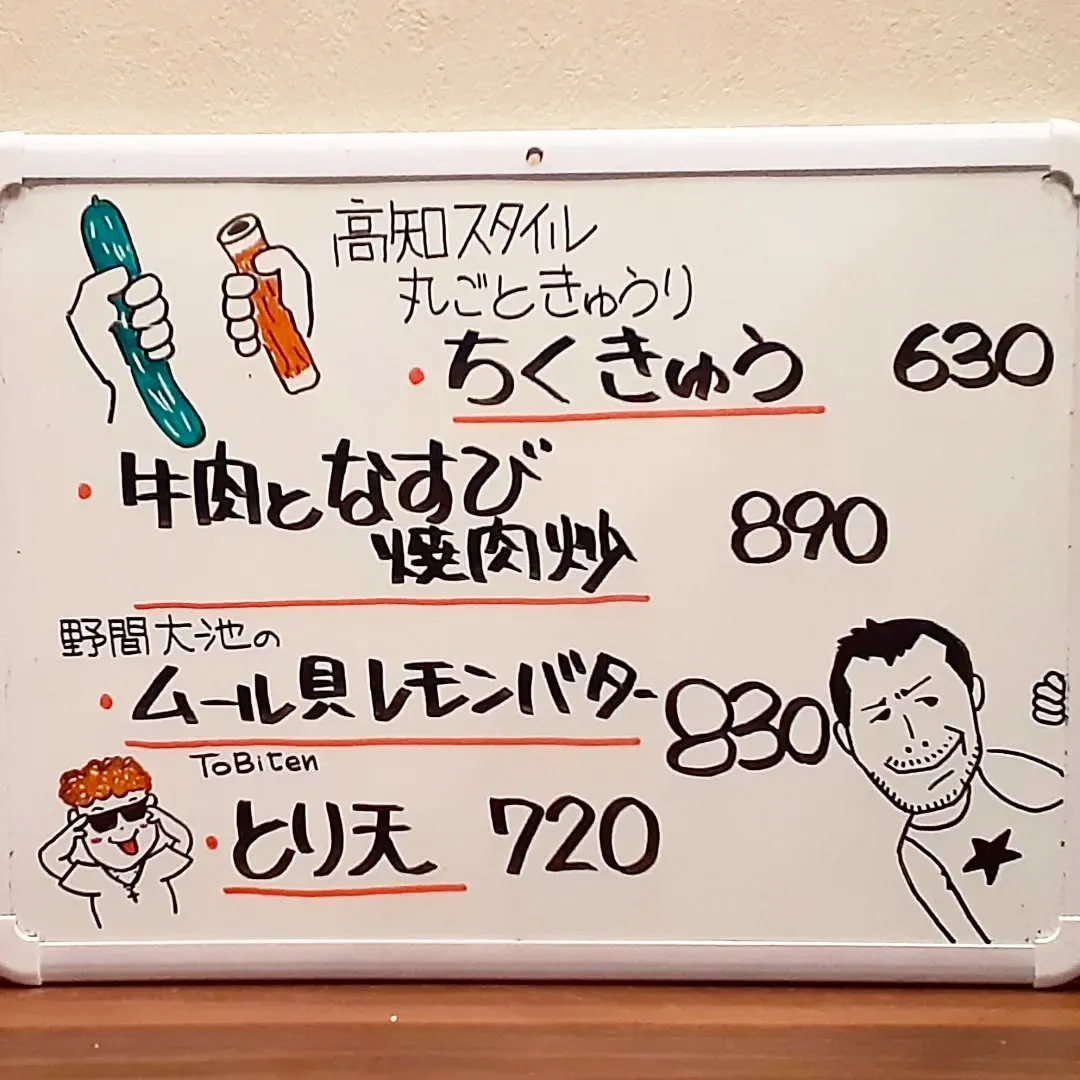 高知スタイル
丸ごときゅうり
・ちくきゅう 630
・牛肉となすび
焼肉炒 890
野間大池の
・ムール貝レモンバター 830
ToBiten
・とり天 720